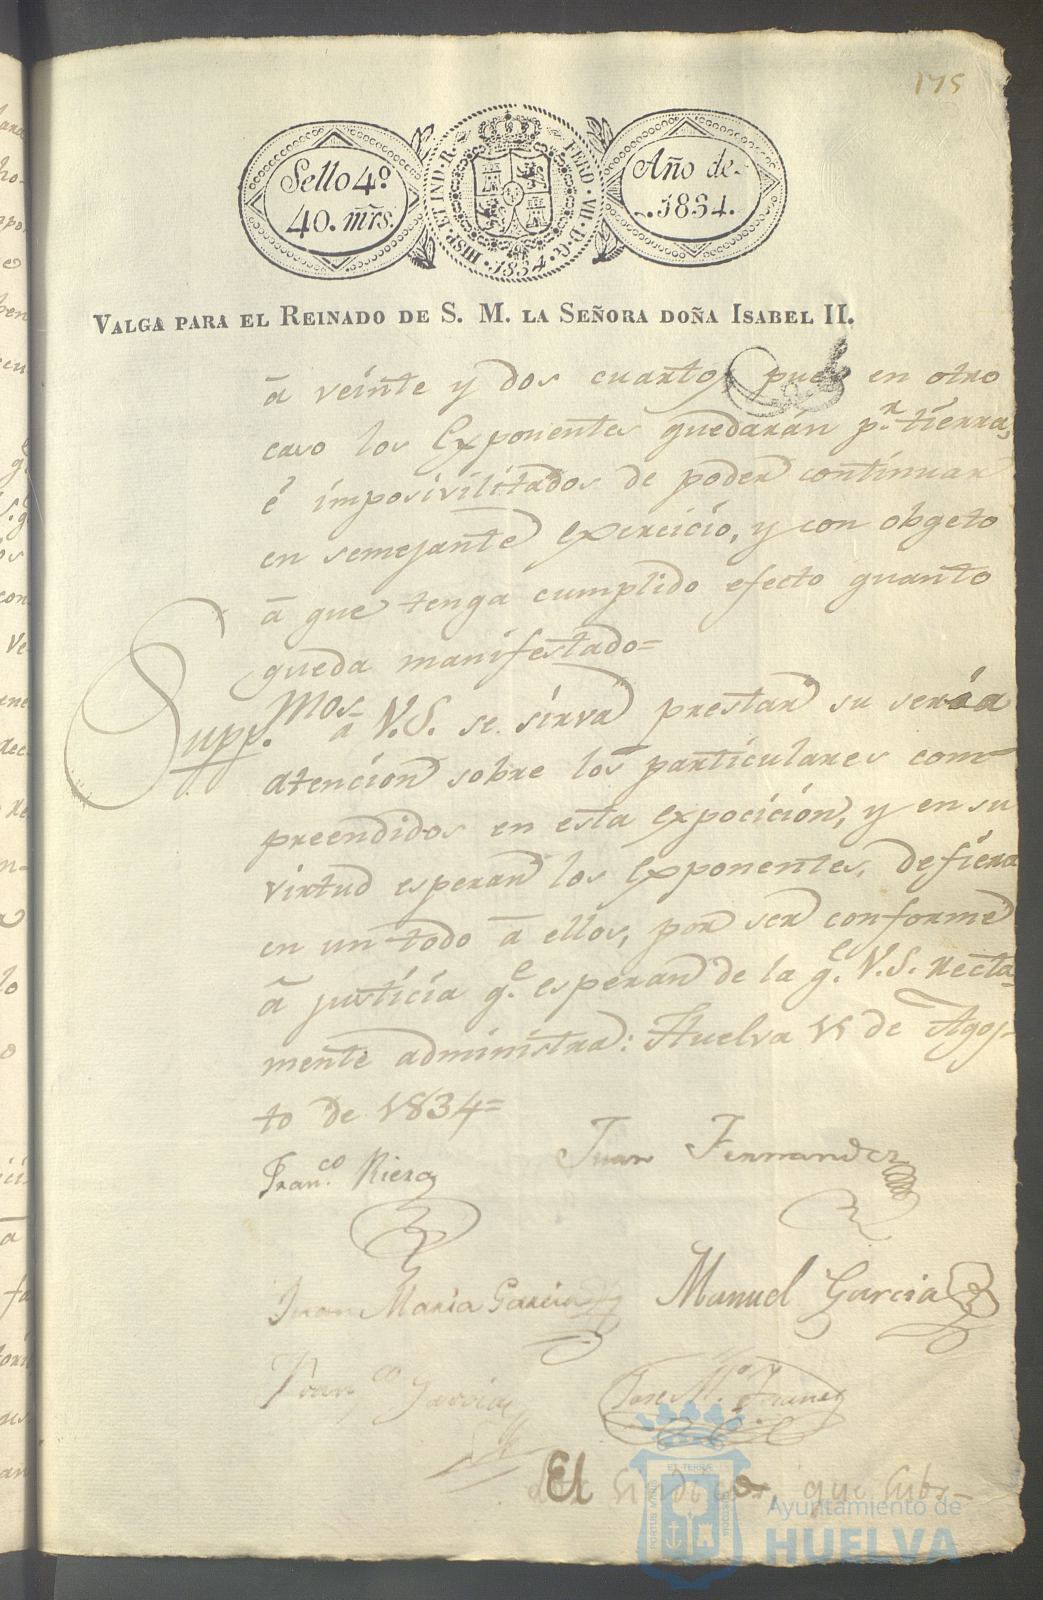 175
Sello 4º
40. mrs.
HISP. ET IND. R. FERD. VII. D. G. 1834.
Año de
1834.
VALGA PARA EL REINADO DE S. M. LA SEÑORA DOÑA ISABEL II.
á veinte y dos cuartos, pues en otro
caso los Exponentes quedarán pr. tierra,
é imposivilitados de poder continuar
en semejante Exercicio, y con obgeto
á que tenga cumplido efecto quanto
queda manifestado=
Suppmos. á V.S. se sirva prestar su seria
atencion sobre los particulares com-
preendidos en esta expocicion, y en su
virtud esperan los Exponentes, defiera
en un todo á ellos, por ser conforme
á justicia qe. esperan de la qe. V.S. recta-
mente administra: Huelva 11 de Agos-
to de 1834=
Franco. Riera
Juan Fernandez
Juan Maria Garcia
Manuel Garcia
Franco Garcia
Jose Ma.
El Sindico, que subs-
Ayuntamiento de
HUELVA